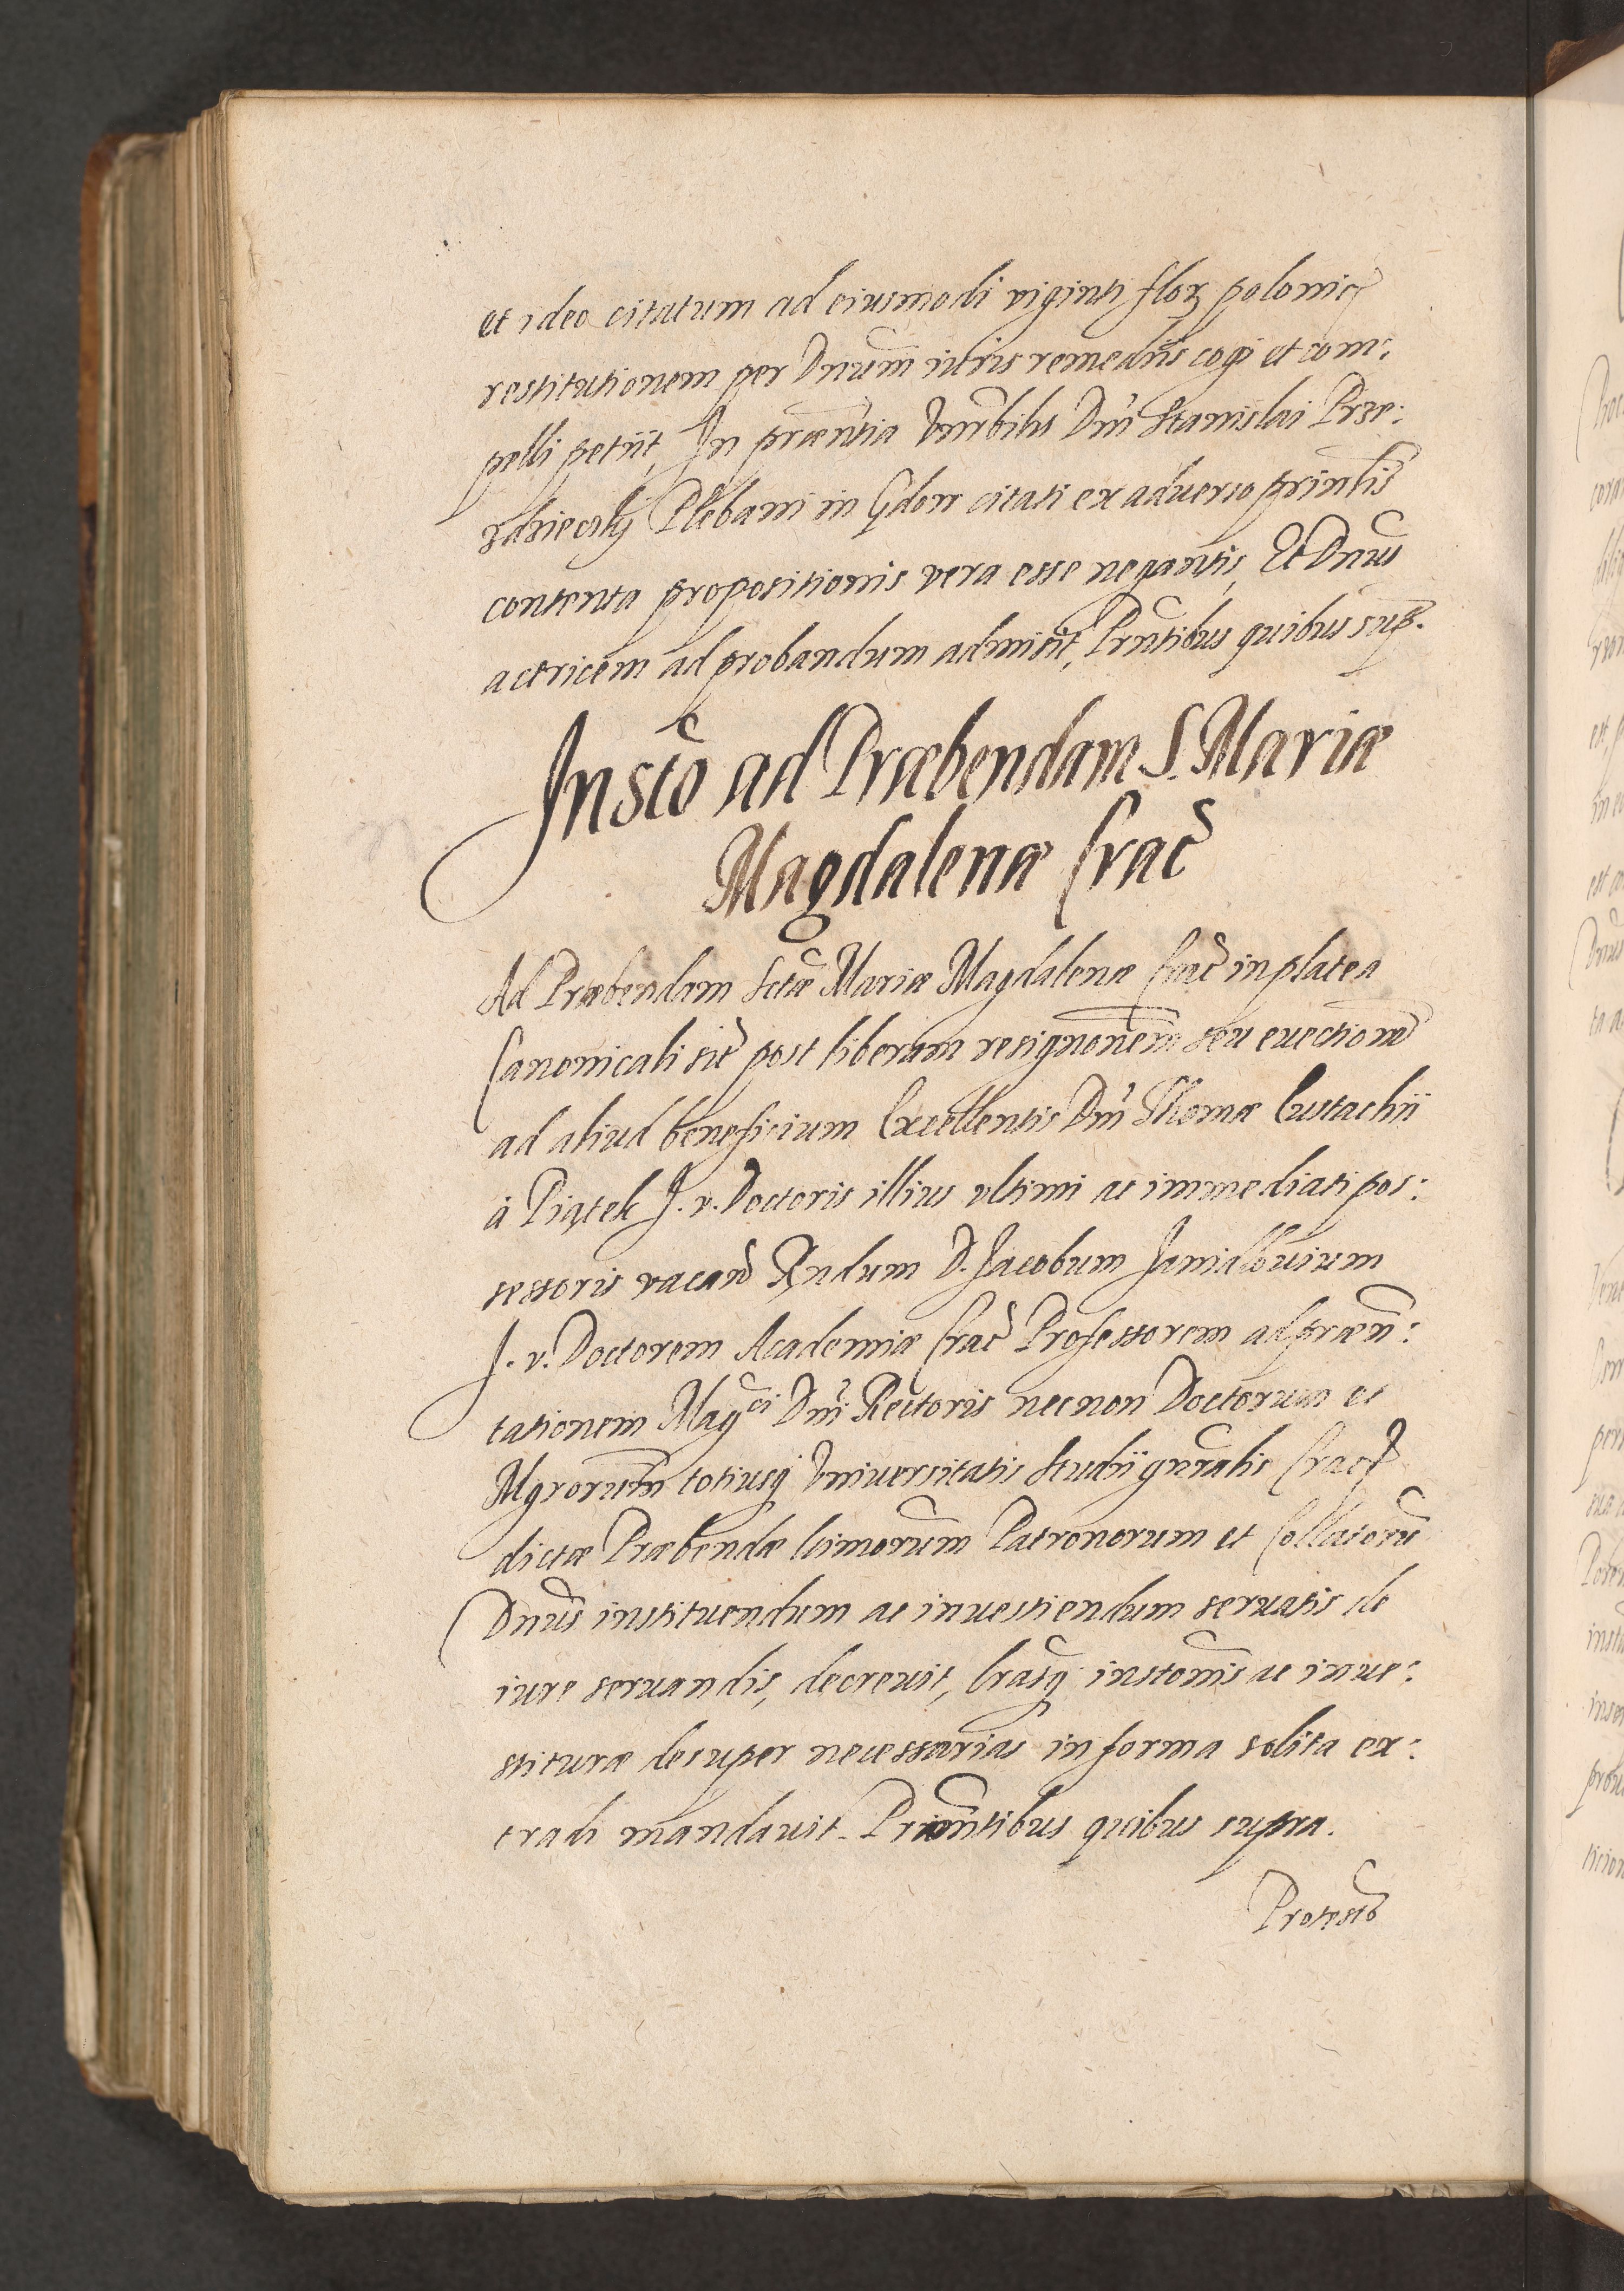 et ideo citatum ad eiusmodi viginti flor polonic
restitutionem per Dnum iuris remediis cogi et com:
pelli petiit, In praentia Dni Stanislai Prze:
Plebani in Gdow citati ex aduerso
contenta propositionis vera esse negantis, Et Dnus
actricem ad probandum admisit, Prntibus quibus sup.
Insto ad Præbendam S. Mariæ
Magdalenæ Crac
Ad Præbendam Sctæ Mariæ Magdalenæ Crac in platea
Canonicali sit post liberam resignonem seu euectionem
ad aliud beneficium Excellentis Dni Thomæ Eustachii
à Piątek J. v. Doctoris illius vltimi ac immediati pos:
sessoris vacan Rndum D. Jacobum Janidlouium
J. v. Doctorem Academiæ Crac Professorem ad præn:
tationem Magci Dni Rectoris necnon Doctorum et
Mgrorum totiusq Vniuersitatis Studii gnralis Crac
dictæ Præbendæ ltimorum Patronorum et Collatorũ
Dnus instituendum ac inuestiendum seruatis de
iure seruandis, decreuit, lrasq instonis ac inue:
stituræ desuper necessarias in forma solita ex:
tradi mandauit. quibus supra.
Protesto